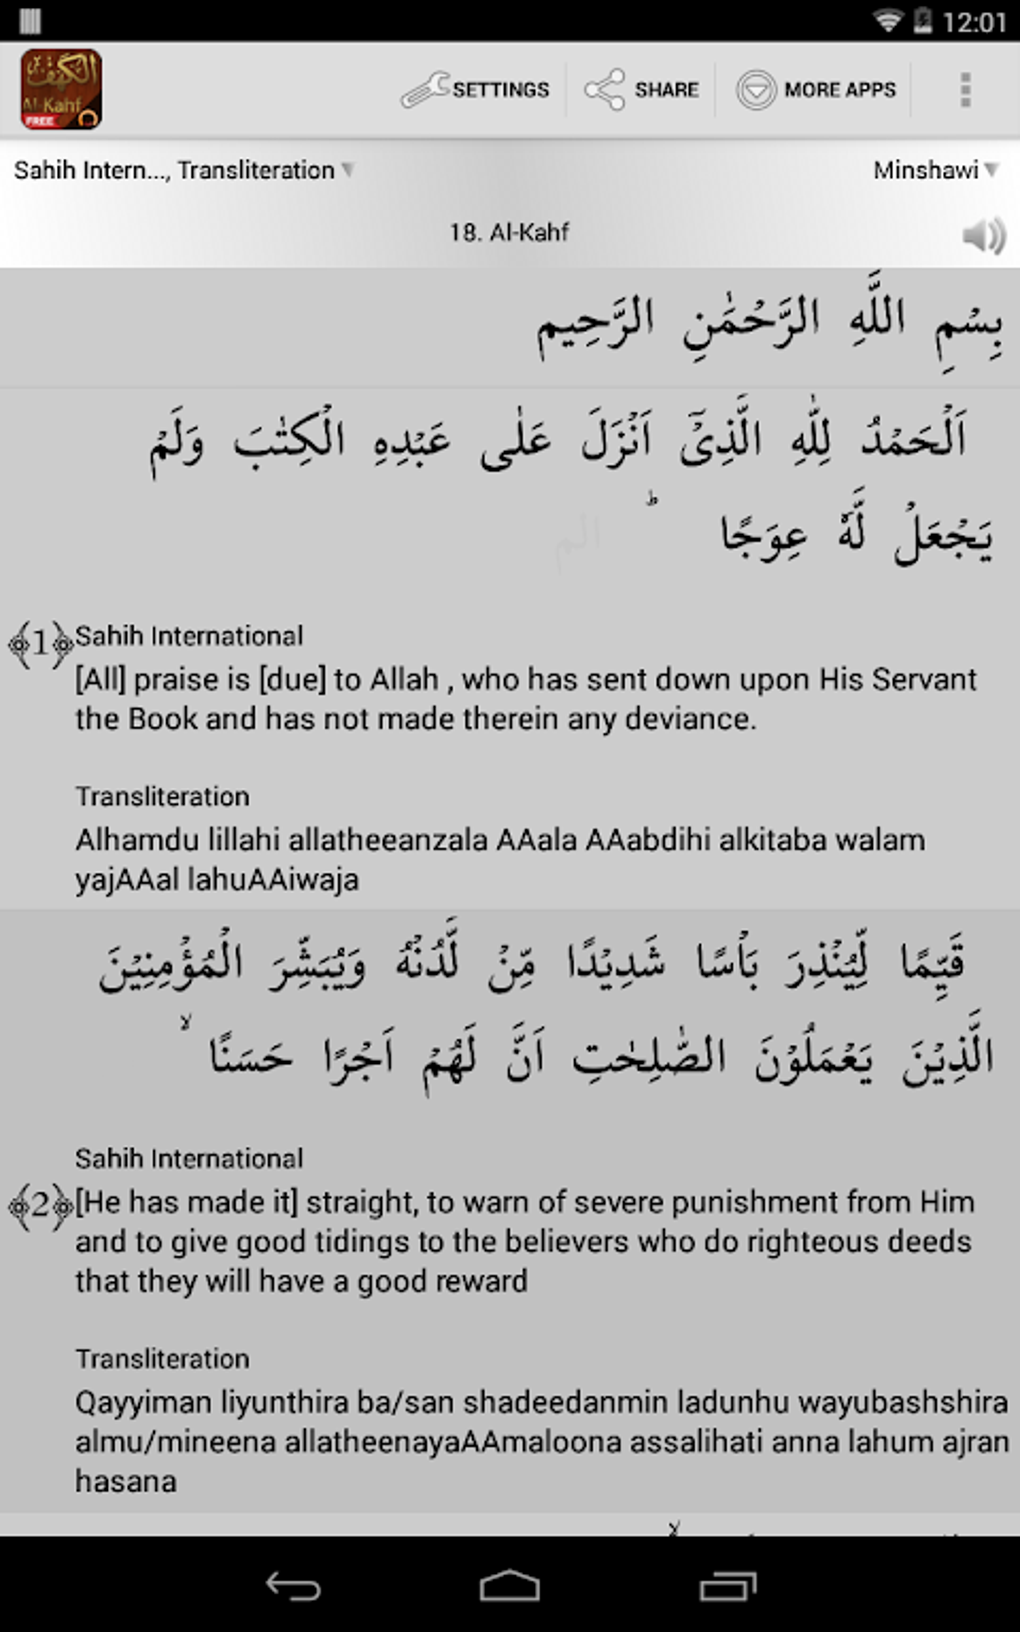 12:01
الكهف
Al-Kahf
FREE
SETTINGS
SHARE
MORE APPS
Sahih Intern..., Transliteration
Minshawi
18. Al-Kahf
بِسْمِ اللَّهِ الرَّحْمَٰنِ الرَّحِيم
اَلْحَمْدُ لِلّٰهِ الَّذِىْٓ اَنْزَلَ عَلٰى عَبْدِهِ الْكِتٰبَ وَلَمْ
يَجْعَلْ لَّهٗ عِوَجًا ؕ الم
1
Sahih International
[All] praise is [due] to Allah , who has sent down upon His Servant
the Book and has not made therein any deviance.
Transliteration
Alhamdu lillahi allatheeanzala AAala AAabdihi alkitaba walam
yajAAal lahuAAiwaja
قَيِّمًا لِّيُنْذِرَ بَاْسًا شَدِيْدًا مِّنْ لَّدُنْهُ وَيُبَشِّرَ الْمُؤْمِنِيْنَ
الَّذِيْنَ يَعْمَلُوْنَ الصّٰلِحٰتِ اَنَّ لَهُمْ اَجْرًا حَسَنًا ۙ
Sahih International
2
[He has made it] straight, to warn of severe punishment from Him
and to give good tidings to the believers who do righteous deeds
that they will have a good reward
Transliteration
Qayyiman liyunthira ba/san shadeedanmin ladunhu wayubashshira
almu/mineena allatheenayaAAmaloona assalihati anna lahum ajran
hasana